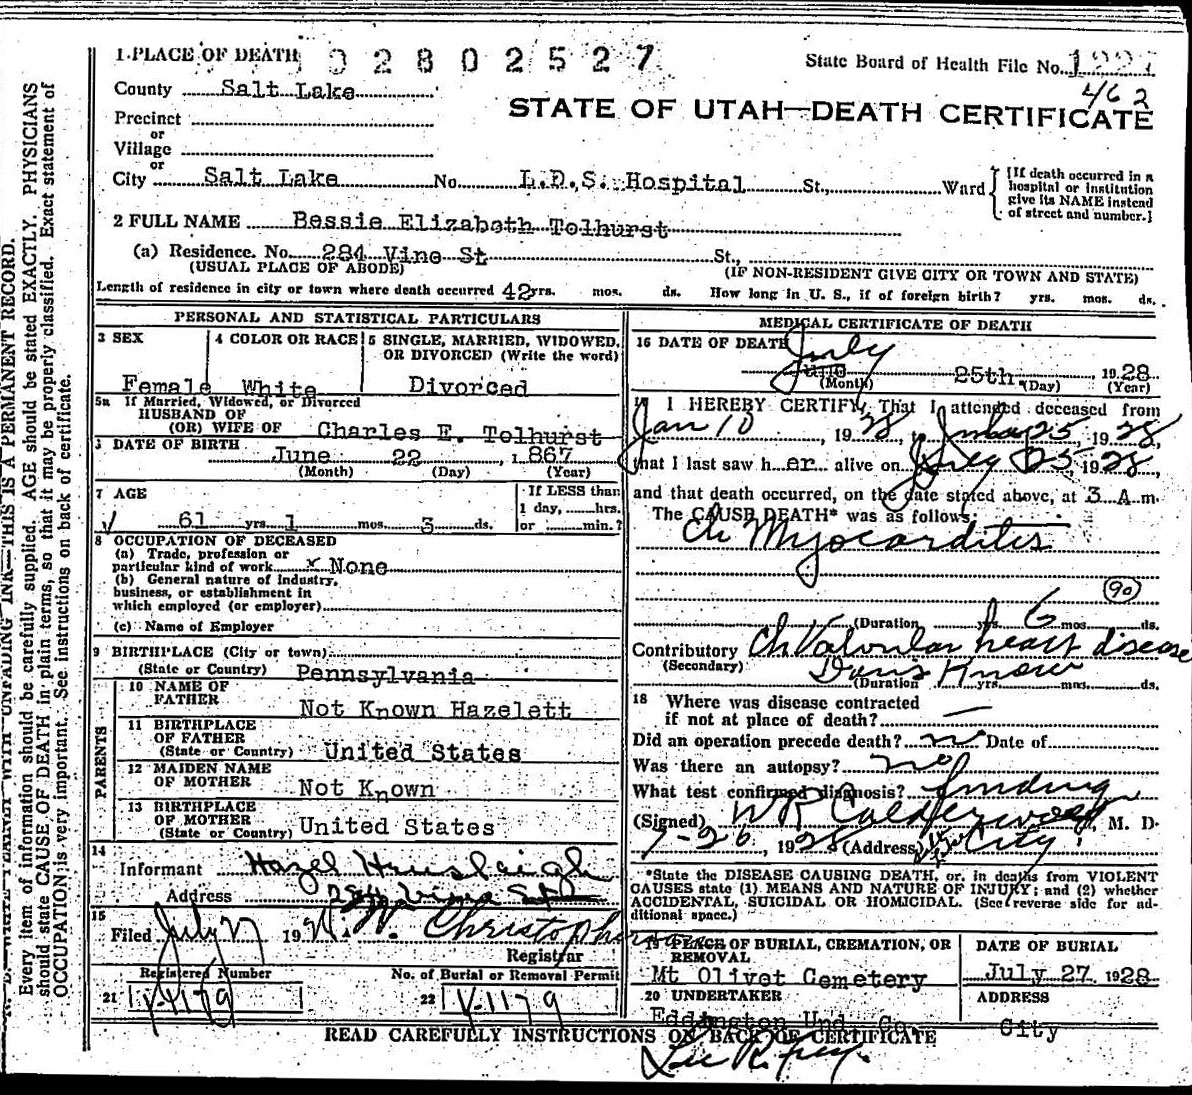 1 PLACE OF DEATH 0 2 8 0 2 5 2 7
State Board of Health File No. 122
462
County Salt Lake
STATE OF UTAH—DEATH CERTIFICATE
Precinct
or
Village
or
City Salt Lake No. L.D.S. Hospital St., Ward
[If death occurred in a hospital or institution give its NAME instead of street and number.]
2 FULL NAME Bessie Elizabeth Tolhurst
(a) Residence. No. 284 Vine St St.,
(USUAL PLACE OF ABODE) (IF NON-RESIDENT GIVE CITY OR TOWN AND STATE)
Length of residence in city or town where death occurred 42 yrs. mos. ds. How long in U. S., if of foreign birth? yrs. mos. ds.
PERSONAL AND STATISTICAL PARTICULARS
3 SEX
Female
4 COLOR OR RACE
White
5 SINGLE, MARRIED, WIDOWED, OR DIVORCED (Write the word)
Divorced
5a If Married, Widowed, or Divorced
HUSBAND OF
(OR) WIFE OF Charles E. Tolhurst
DATE OF BIRTH June 22, 1867
(Month) (Day) (Year)
7 AGE
61 yrs. 1 mos. 3 ds.
If LESS than
1 day, hrs.
or min.?
8 OCCUPATION OF DECEASED
(a) Trade, profession or
particular kind of work x None
(b) General nature of industry,
business, or establishment in
which employed (or employer)
(c) Name of Employer
9 BIRTHPLACE (City or town)
(State or Country) Pennsylvania
PARENTS
10 NAME OF
FATHER Not Known Hazelett
11 BIRTHPLACE
OF FATHER
(State or Country) United States
12 MAIDEN NAME
OF MOTHER Not Known
13 BIRTHPLACE
OF MOTHER
(State or Country) United States
14
Informant Hazel
Address 284 Vine St
15
Filed July 27 192 W. Christopherson
Registrar
Registered Number No. of Burial or Removal Permit
21 V-1179 22 V-1179
MEDICAL CERTIFICATE OF DEATH
16 DATE OF DEATH July
June 25th 1928
(Month) (Day) (Year)
17 I HEREBY CERTIFY, That I attended deceased from
Jan 10, 1928, July 25, 1928,
that I last saw her alive on July 25, 1928,
and that death occurred, on the date stated above, at 3 A.m.
The CAUSE DEATH* was as follows:
Ch Myocarditis
90
(Duration yrs. 6 mos. ds.
Contributory Ch Valvular heart disease
(Secondary) Dont Know
(Duration yrs. mos. ds.
18 Where was disease contracted
if not at place of death? —
Did an operation precede death? no Date of
Was there an autopsy? no
What test confirmed diagnosis? finding
(Signed) W R Calderwood, M. D.
7-26, 1928 (Address) City
*State the DISEASE CAUSING DEATH, or, in deaths from VIOLENT
CAUSES state (1) MEANS AND NATURE OF INJURY; and (2) whether
ACCIDENTAL, SUICIDAL OR HOMICIDAL. (See reverse side for ad-
ditional space.)
19 PLACE OF BURIAL, CREMATION, OR
REMOVAL
Mt Olivet Cemetery
DATE OF BURIAL
July 27, 1928
20 UNDERTAKER
Eddington Und. Co.
ADDRESS
City
READ CAREFULLY INSTRUCTIONS ON BACK OF CERTIFICATE
N. B.—WRITE PLAINLY WITH UNFADING INK—THIS IS A PERMANENT RECORD.
Every item of information should be carefully supplied. AGE should be stated EXACTLY. PHYSICIANS
should state CAUSE OF DEATH in plain terms, so that it may be properly classified. Exact statement of
OCCUPATION is very important. See instructions on back of certificate.